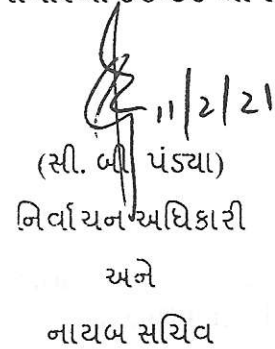 11/2/21
(સી. બી પંડયા)
નિર્વાચન અધિકારી
અને
નાયબ સચિવ